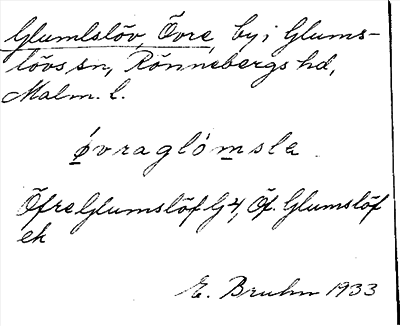 Glumslöv, Övre, by i Glums-
lövs sn, Rönnebergs hd,
Malm. l.
øvraglòmsla
Öfre Glumslöf G 4, Öf. Glumslöf
ek
E. Bruhn 1933